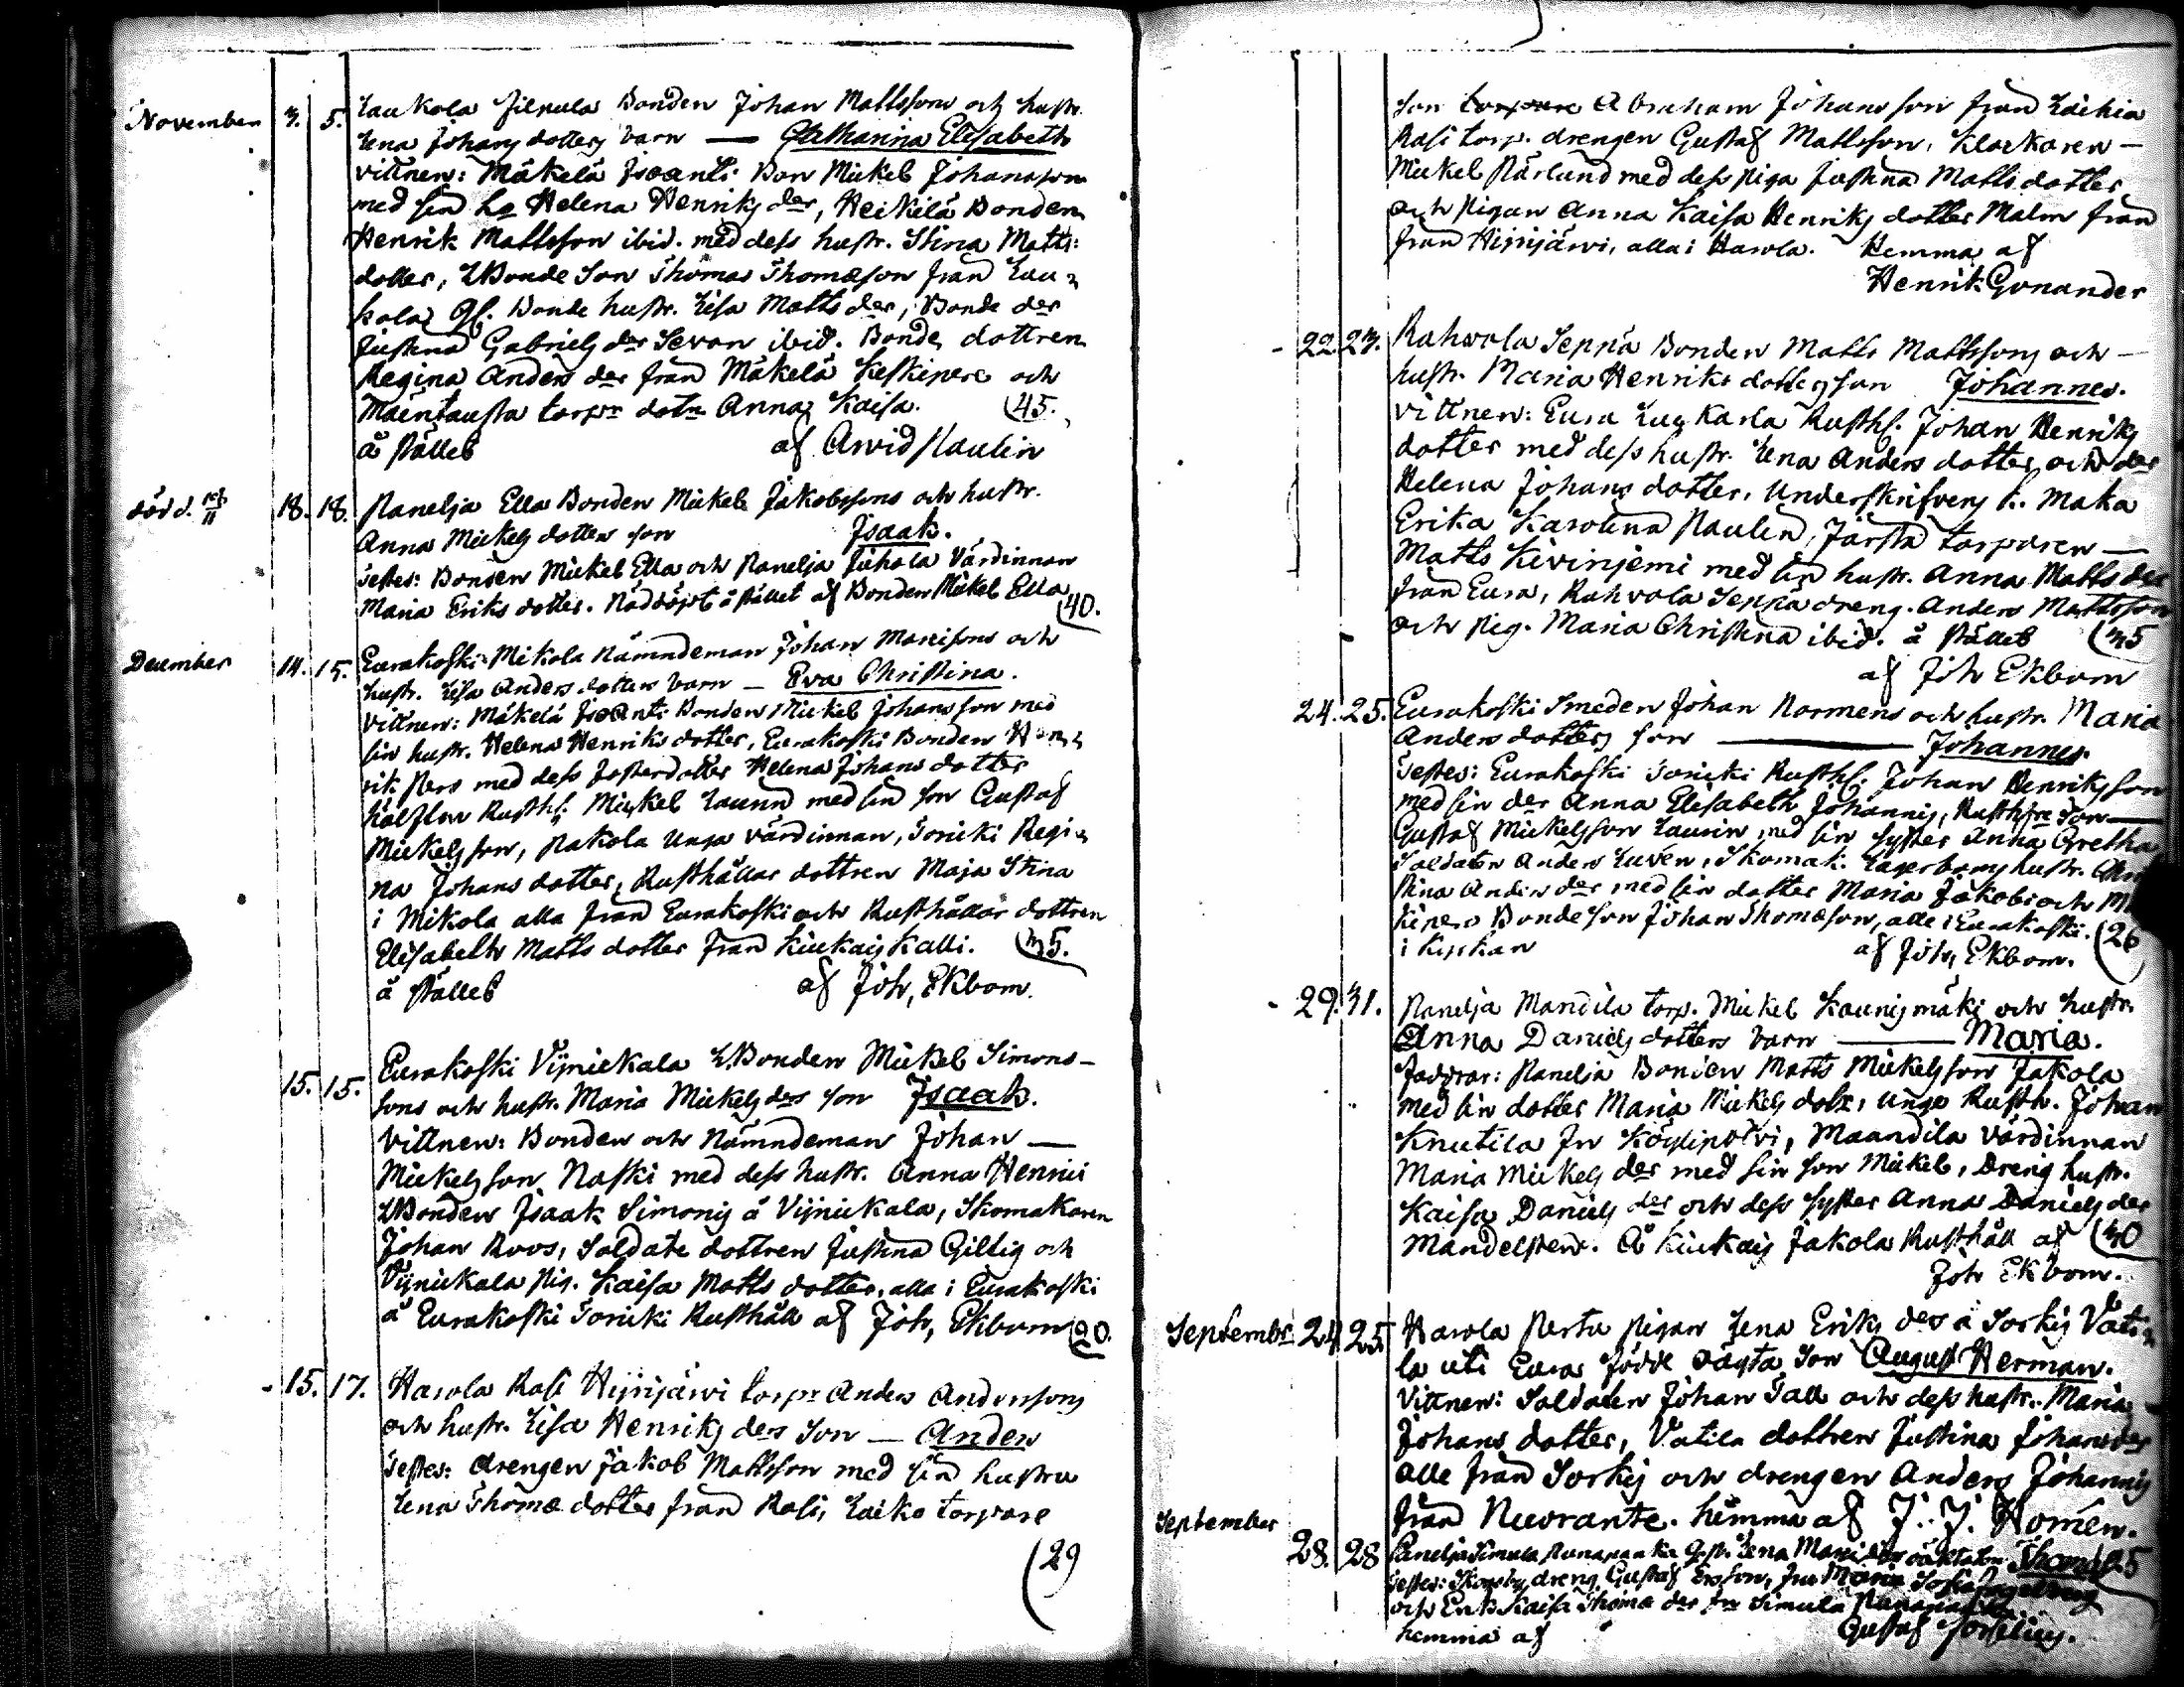 November 3. 5. Laukola Jilpula Bonden Johan Mattssons och hustr.
Lena Johans dotters barn — Chatharina Elisabeth
vittnen: Mäkelä Isoanti Bon Mickel Johansson
med sin ha Helena Henriks der, Heikilä Bonden
Henrik Mattsson ibid. med dess hustr. Stina Matts:
dotter, LBonde Son Thomas Thomæson från Lau=
kola Gl. Bonde hustr. Lisa Matts der, Bonde der
Justina Gabriels der Sevon ibid. Bonde dottren
Regina Anders der från Mäkelä Keskipere och
Mäentausta torpr dotn Anna Kaisa. (45.
å stället af Arvid Paulin
död d. 18. 18. Panelja Ella Bonden Mickel Jakobssons och hustr.
Anna Mickels dotters son Isaak.
Testes: Bonden Mickel Ella och Panelja Juhola Värdinnan
Maria Eriks dotter. Nöddöpt å stället af Bonden Mickel Ella (40.
December 14. 15. Eurakoski Mikola Nämndeman Johan Matissons och
hustr. Lisa Anders dotters barn — Eva Christina.
vittnen: Mäkelä Isoanti Bonden Mickel Johansson med
sin hustr. Helena Henriks dotter, Eurakoski Bonden Hen=
rik Pers med dess fosterdotter Helena Johans dotter
hälften Rusthl. Mickel Launn med sin son Gustaf
Mickelsson, Pakola Unga värdinnan, Toricki Regi=
na Johans dotter, Rusthållar dottren Maja Stina
i Mikola alla från Eurakoski och Rusthållar dottren
Elisabeth Matts dotter från Kiukais Kalli. (35.
å stället af Joh, Ekbom.
15. 15. Eurakoski Vijnickala LBonden Mickel Simons-
sons och hustr. Maria Mickels ders son Isaak.
Vittnen: Bonden och Nämndeman Johan —
Mickelsson Naski med dess hustr. Anna Henrici
LBonden Isaak Simonis å Vijnickala, Skomakaren
Johan Roos, Soldate dottren Justina Gillig och
Vijnickala pig. Kaisa Matts dotter, alla i Eurakoski
å Eurakoski Toricki Rusthåll af Joh, Ekbom (20.
- 15. 17. Harola Rasi Hijrijärvi torpr Anders Anderssons
och hustr. Lisa Henriks ders Son — Anders
Testes: drengen Jakob Mattsson med sin hustru
Lena Thomæ dotter från Rasi, Laiko torpare
(29
son torpare Abraham Johansson från Laikia
Rasi torp. drengen Gustaf Mattsson, Klockaren —
Mickel Pärlund med dess piga Justina Matts dotter,
och Pigan Anna Kaisa Henriks dotter Malm från
från Hijrijärvi, alla i Harola. Hemma af
Henrik Gonander
- 22 23. Rahvola Seppä Bonden Matts Mattssons och —
hustr. Maria Henriks dotters son Johannes.
Vittnen: Eura Luukarla Rusthl. Johan Henriks
dotter med dess hustr. Lena Anders dotter, och der
Helena Johans dotter, Underskrifvens k. Maka
Erika Karolina Paulin, Järsta torparen —
Matts Kivinjemi med sin hustr. Anna Matts der
från Eura, Rahvola Seppä dreng. Anders Mattsson
och pig. Maria Christina ibid. å stället (35
af Joh Ekbom
24. 25. Eurakoski Smeden Johan Normens och hustr. Maria
Anders dotters son — Johannes.
Testes: Eurakoski Toricki Rusthl. Johan Henriksson
med sin der Anna Elisabeth Johannis, Rusthrs Son —
Gustaf Mickelsson Launin, med sin syster Anna Gretha
Soldaten Anders Luven, Skomak. Lagerboms hustr.
stina Anders der med sin dotter Maria Jakobs och
Bonde son Johan Thomæson, alle i Eurakoski. (26
i kyrkan af Joh, Ekbom.
- 29. 31. Panelja Mandila torp. Mickel Kaunismäki och hustr.
Anna Daniels dotters barn — Maria.
Faddrar: Panelja Bonden Matts Mickelsson Jakola
med sin dotter Maria Mickels dotr, Unga Rusth. Johan
Knutila fr Köylipolvi, Maandila värdinnan
Maria Mickels der med sin son Mickel, Dreng hustr.
Kaisa Daniels der och dess syster Anna Daniels der
Mandelsten. Å Kiukais Jakola Rusthåll af (30
Joh Ekbom.
September 24 25 Harola Perttu pigan Lena Eriks der å Sorkis Vati=
la uti Eura födde oägta Son August Herman.
Vittnen: Soldaten Johan Tall och dess hustr. Maria
Johans dotter, Vatila dottren Justina Johans der
alle från Sorkis och drengen Anders Johannis
från Nuoranti. hemma af J. J. Homén.
September 28. 28 Panelja Simula Lena oäkta 25
Testes: dreng Gustaf Ersson, fru Maria Sofia
och Enk Kaisa Thomæ der fr Simula
hemma af Gustaf